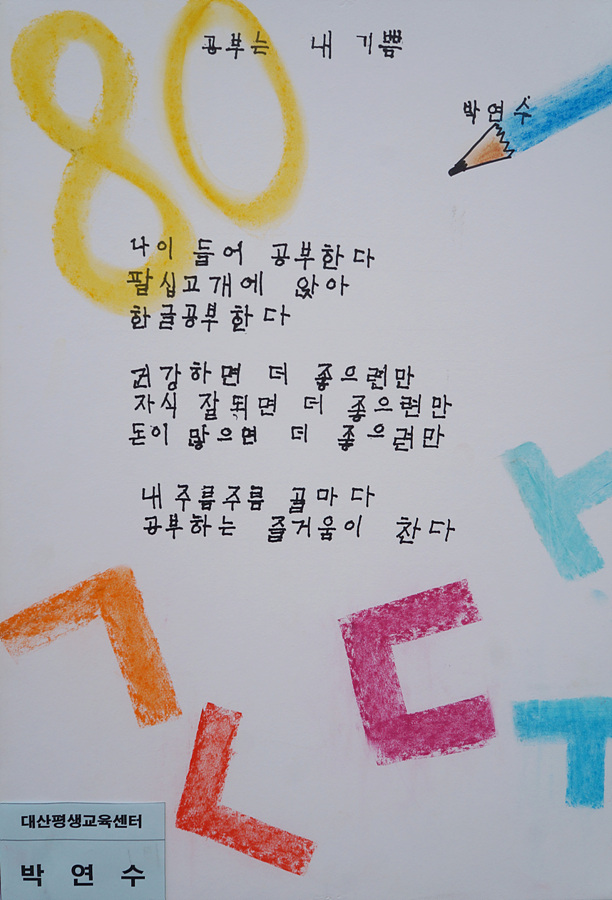 80
공부는 내 기쁨
박연수
나이 들어 공부한다
팔십고개에 앉아
한글공부 한다
건강하면 더 좋으련만
자식 잘 되면 더 좋으련만
돈이 많으면 더 좋으련만
내 주름주름 골마다
공부하는 즐거움이 찬다
ㅏ
ㄱ
ㄷ
ㄴ
ㅜ
대산평생교육센터
박 연 수